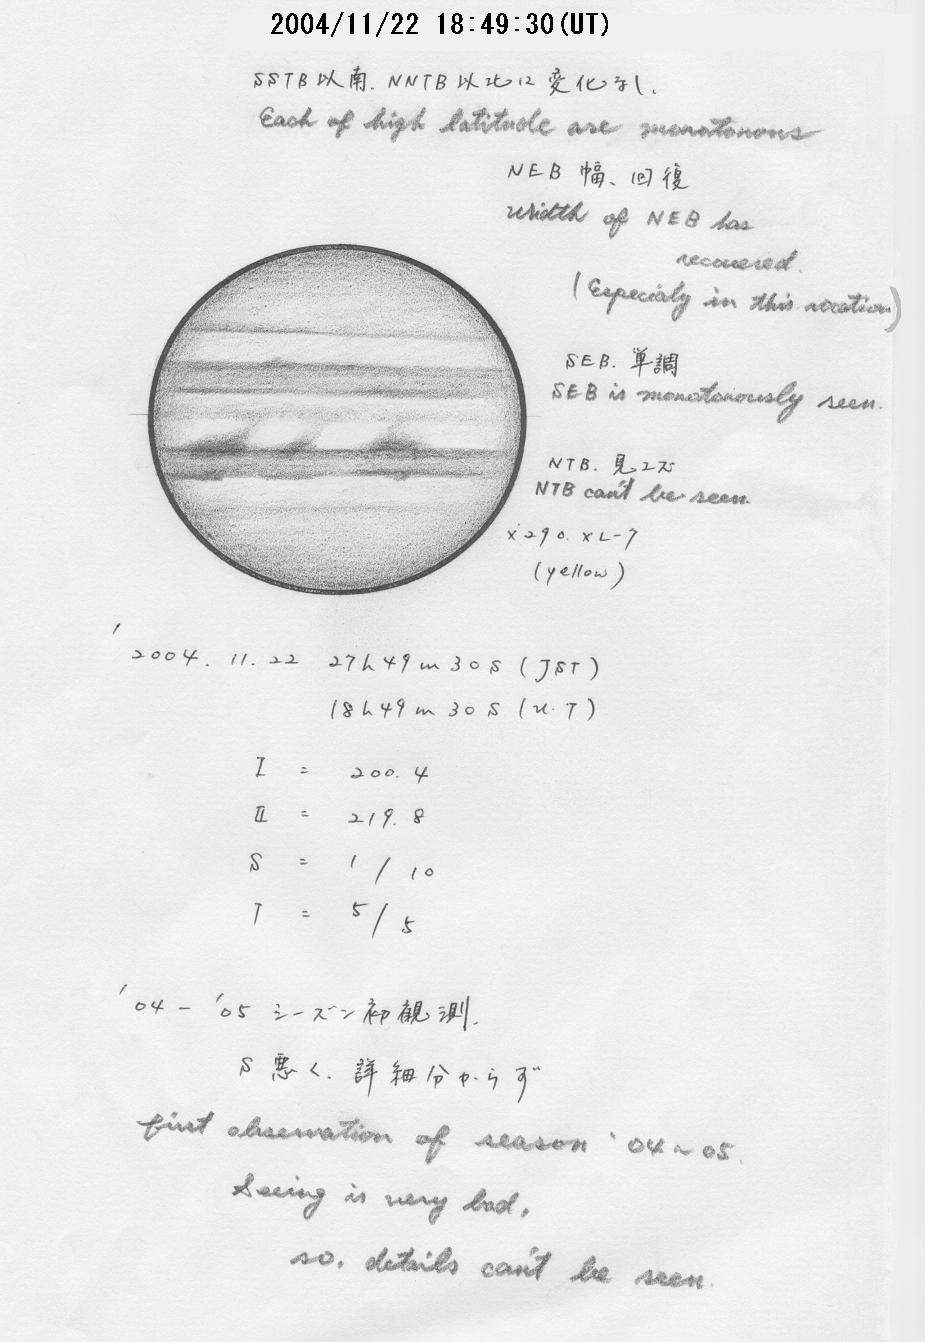 2004/11/22 18:49:30(UT)
SSTB以南、NNTB以北に変化なし、
Each of high latitude are monotonous
NEB 幅、回復
width of NEB has
recovered.
(Especialy in this rocation)
SEB. 単調
SEB is monotonously seen.
NTB. 見エズ
NTB can't be seen.
×290. XL-7
(yellow)
'2004. 11. 22 27h49m30S (JST)
18h49m30S (U.T)
I = 200.4
II = 219.8
S = 1/10
T = 5/5
'04 - '05 シーズン初観測.
S悪く、詳細分からず
first observation of season '04~05.
Seeing is very bad,
so, details can't be seen.